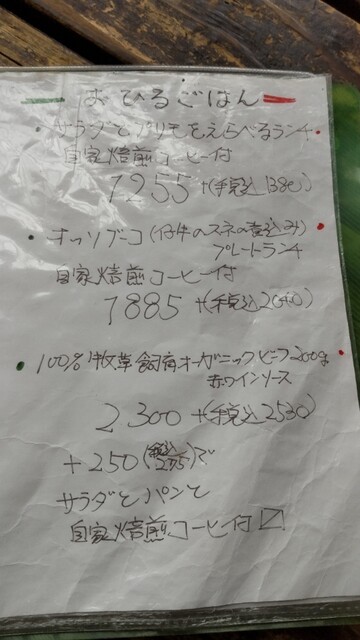 おひるごはん
・サラダとプリモをえらべるランチ・
自家焙煎コーヒー付
1255+(税込1380)
・オッソブーコ(仔牛のスネの煮込み)・
プレートランチ
自家焙煎コーヒー付
1885+(税込2040)
・100%牧草飼育オーガニックビーフ200g・
赤ワインソース
2300+(税込2530)
+250(税込275)で
サラダとパンと
自家焙煎コーヒー付